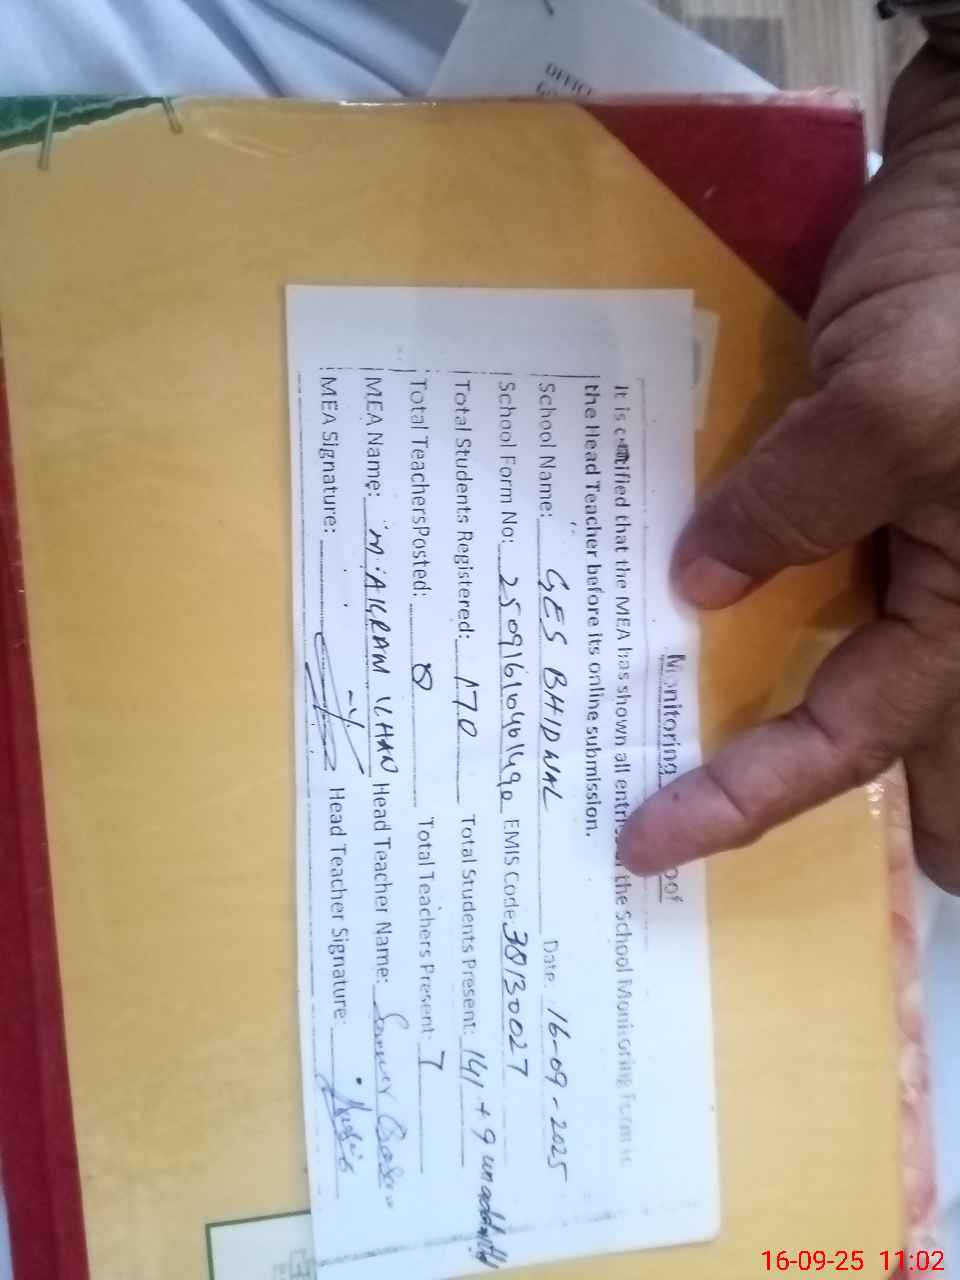 Monitoring
It is certified that the MEA has shown all entri the School Monitoring Form is
the Head Teacher before its online submission.
School Name: GES BHIDWAL Date: 16-09-2025
School Form No: EMIS Code: 38130027
Total Students Registered: 170 Total Students Present: 141 + 9 unadmitted
Total TeachersPosted: 8 Total Teachers Present: 7
MEA Name: M. AKRAM KHAN Head Teacher Name:
MEA Signature: Head Teacher Signature:
16-09-25 11:02